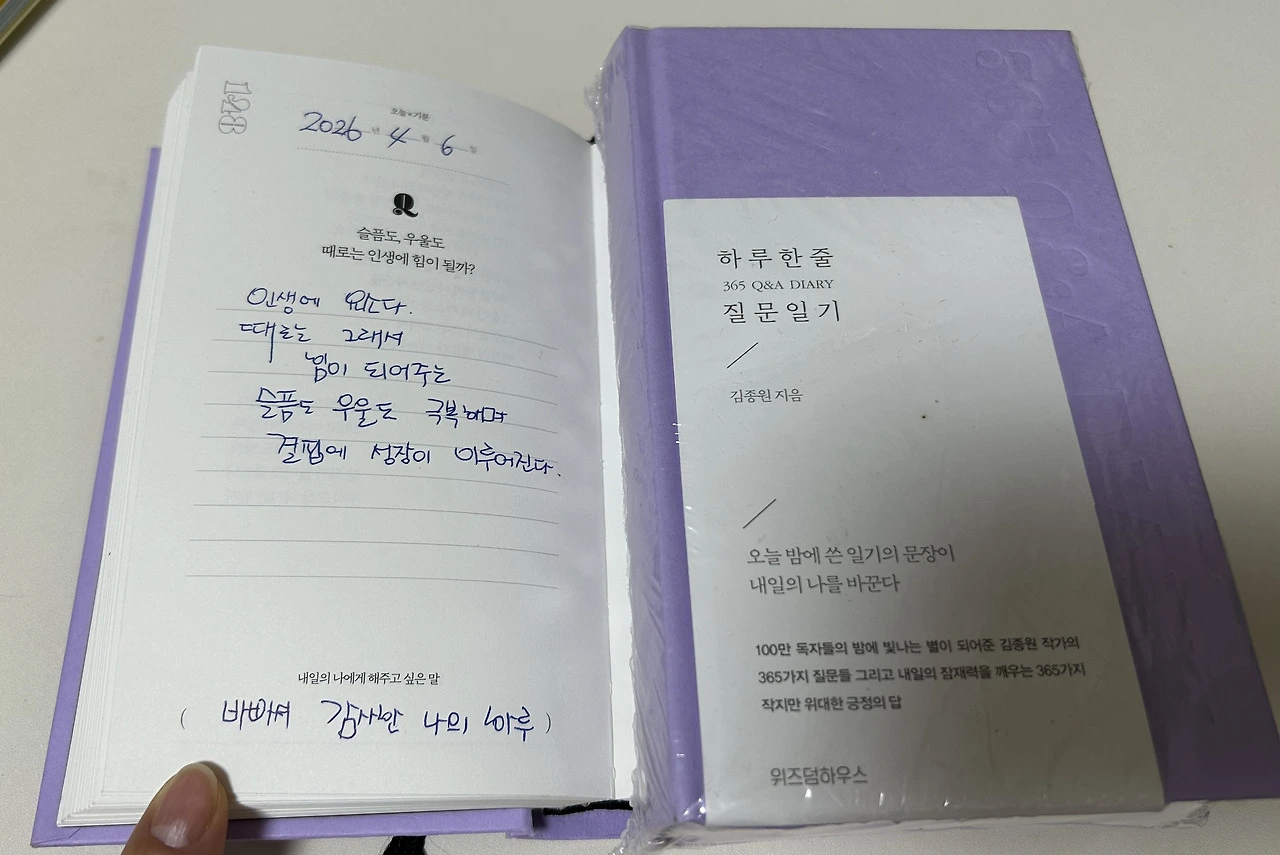 128
오늘×기분
2026년 4월 6일
Q
슬픔도, 우울도
때로는 인생에 힘이 될까?
인생에 있다.
때로는 그래서
힘이 되어주는
슬픔도 우울도 극복하며
결핍에 성장이 이루어진다.
내일의 나에게 해주고 싶은 말
( 바빠서 감사한 나의 하루 )
하루 한 줄
365 Q&A DIARY
질문 일기
김종원 지음
오늘 밤에 쓴 일기의 문장이
내일의 나를 바꾼다
100만 독자들의 밤에 빛나는 별이 되어준 김종원 작가의
365가지 질문들 그리고 내일의 잠재력을 깨우는 365가지
작지만 위대한 긍정의 답
위즈덤하우스